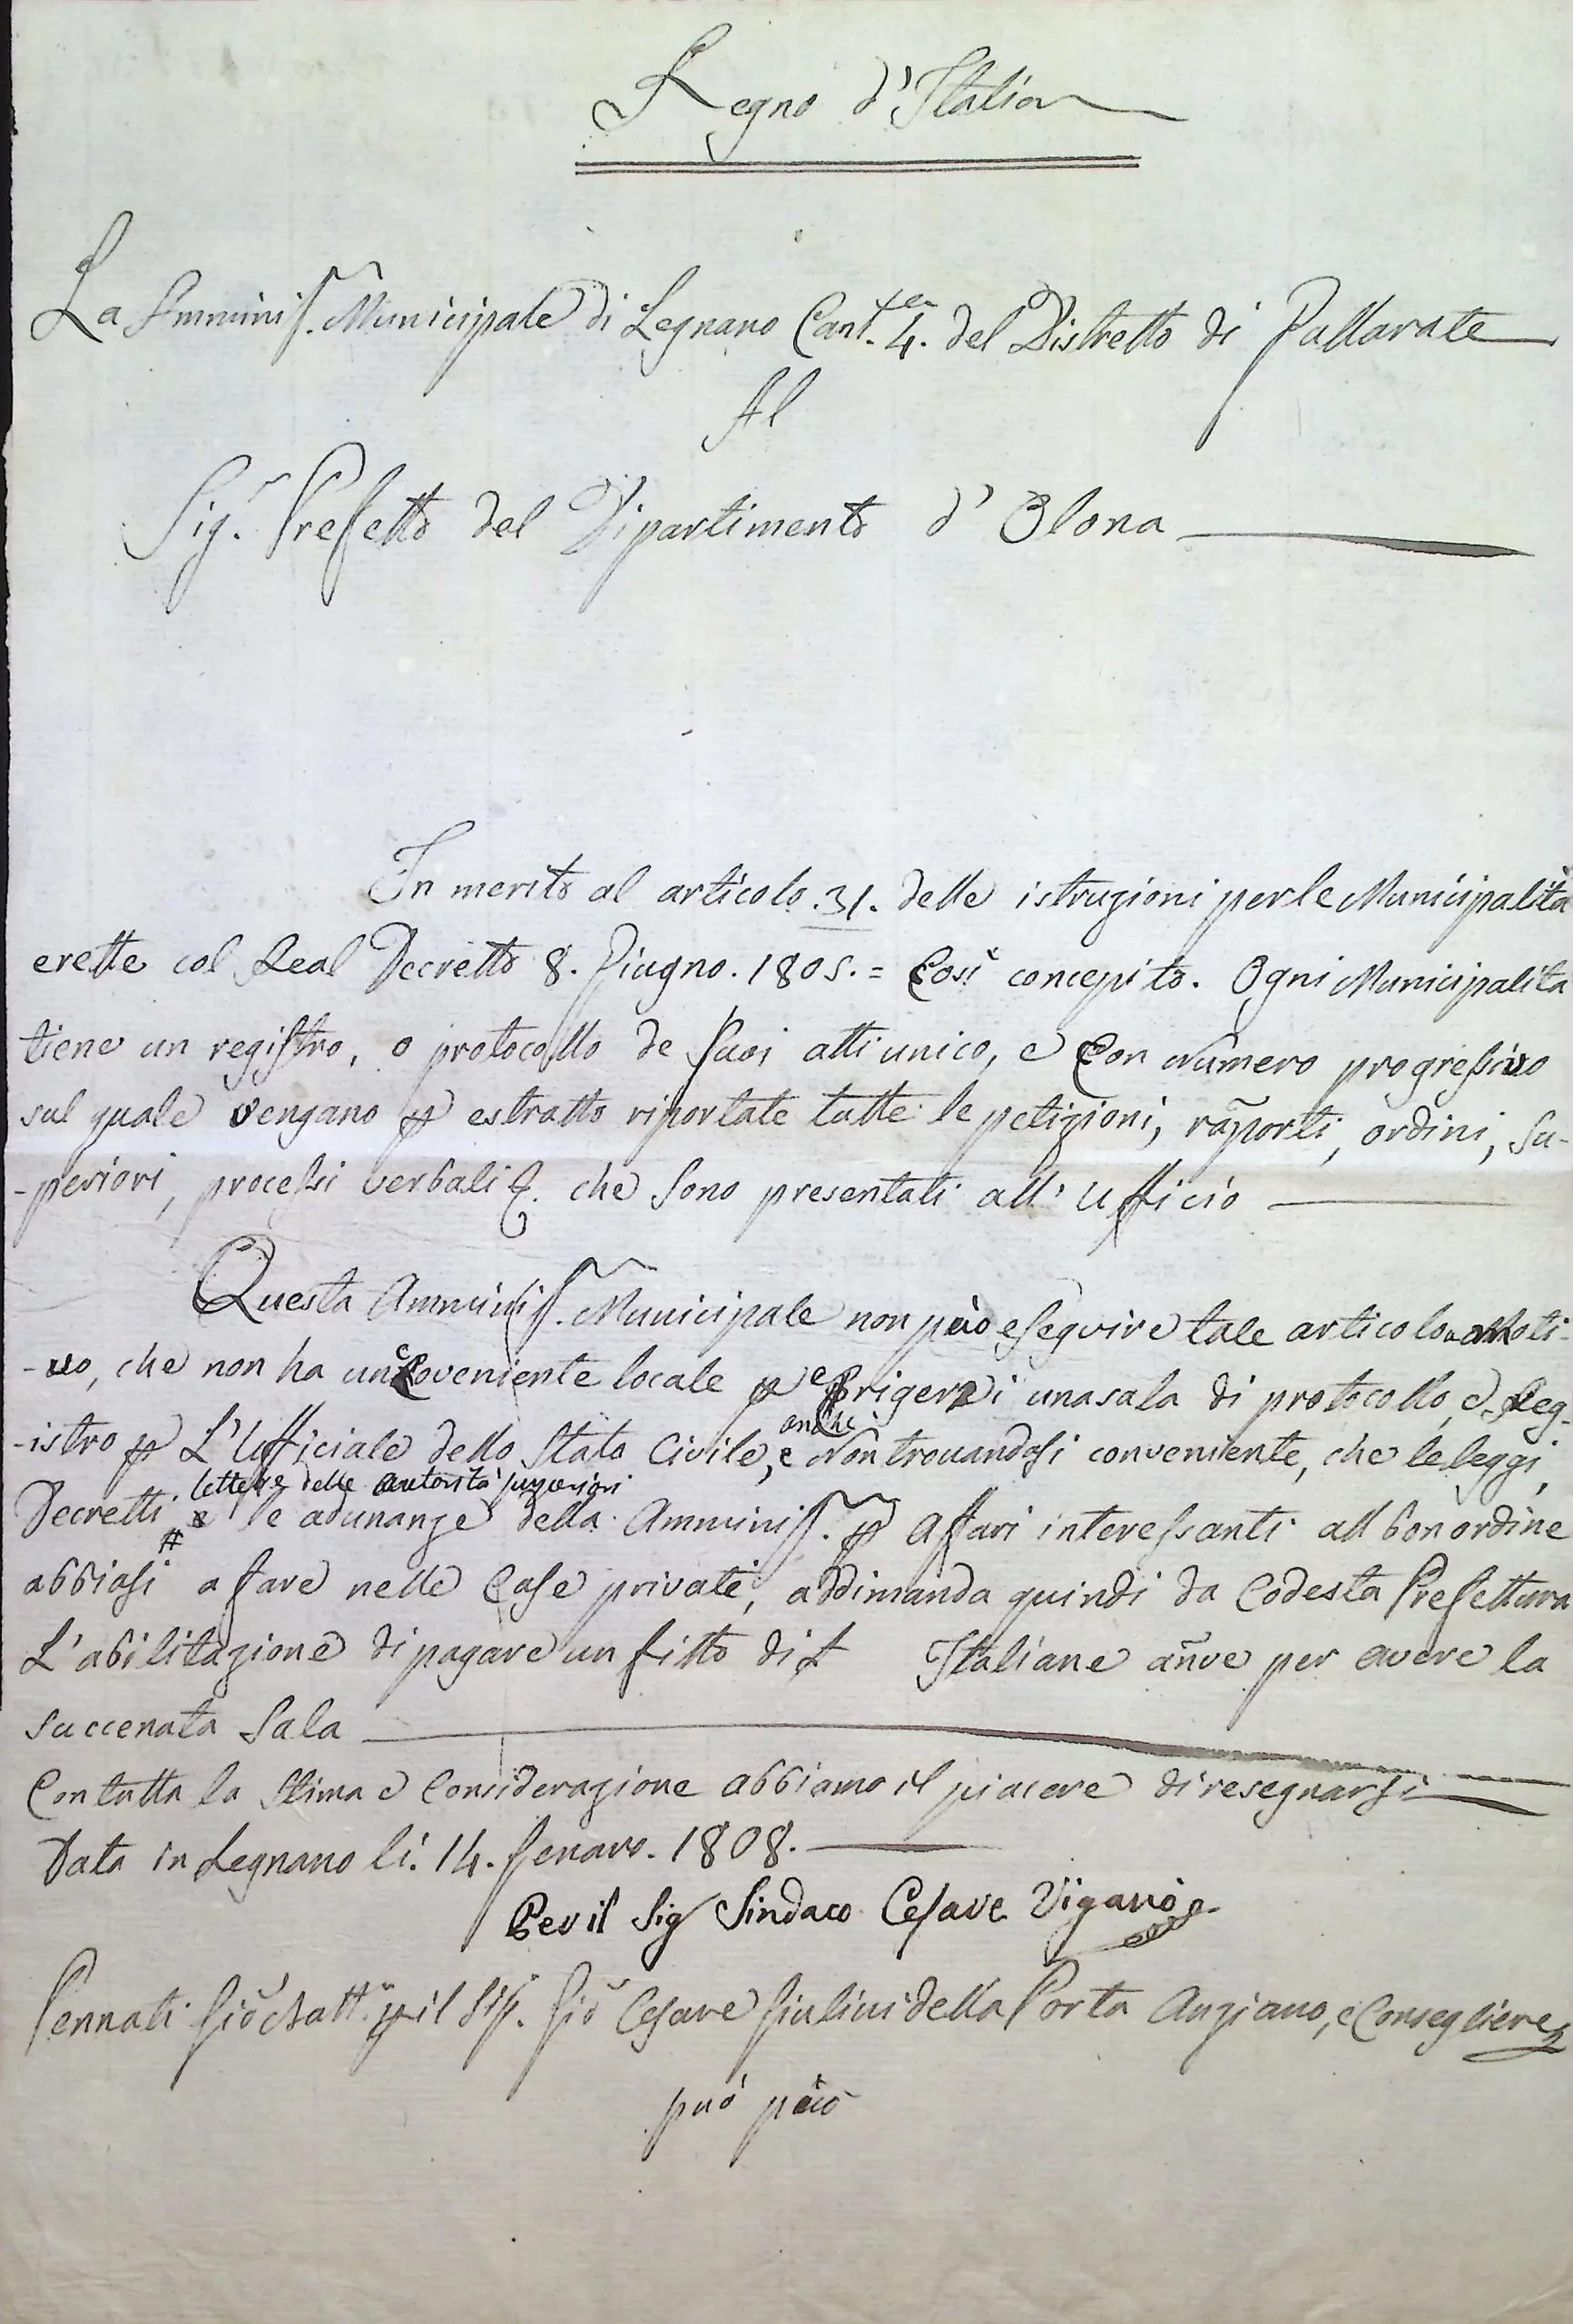 Regno d'Italia
La Amminis. Municipale di Legnano Cant. 4. del Distretto di Gallarate
Al
Sig.r Prefetto del Dipartimento d' Olona
In merito al articolo .31. delle istruzioni per le Municipalità
erette col Real Decretto 8. Giugno. 1805. = Così concepito. Ogni Municipalita
tiene un registro, o protocollo de suoi atti unico, e Con Numero progressivo
sul quale vengano p estratto riportate tutte le petizioni, raporti, ordini, su-
-periori, processi verbali &. che sono presentati all' Ufficio
Questa Amminis. Municipale non può eseguire tale articolo a Moti-
-vo, che non ha un coveniente locale p erigervi una sala di protocollo, e Reg-
-istro p L'Ufficiale dello Stato Civile, e anche Non trovandosi conveniente, che le leggi,
lettere delle autorità superiori
Decretti # e le adunanze della Amminis. p affari interessanti al bon ordine
abbiasi a fare nelle Case private, addimanda quindi da Codesta Prefettura
L'abilitazione di pagare un fitto di £ Italiane añue per avere la
succenata Sala
Con tutta la Stima e Considerazione abbiamo il piacere di resegnarsi
Data in Legnano li. 14. Genaro. 1808.
Per il Sig Sindaco Cesare Viganò
Pennati Giõ Batt.a p il Sig. Giõ Cesare Giulini della Porta Anziano, e Consegliere
può può